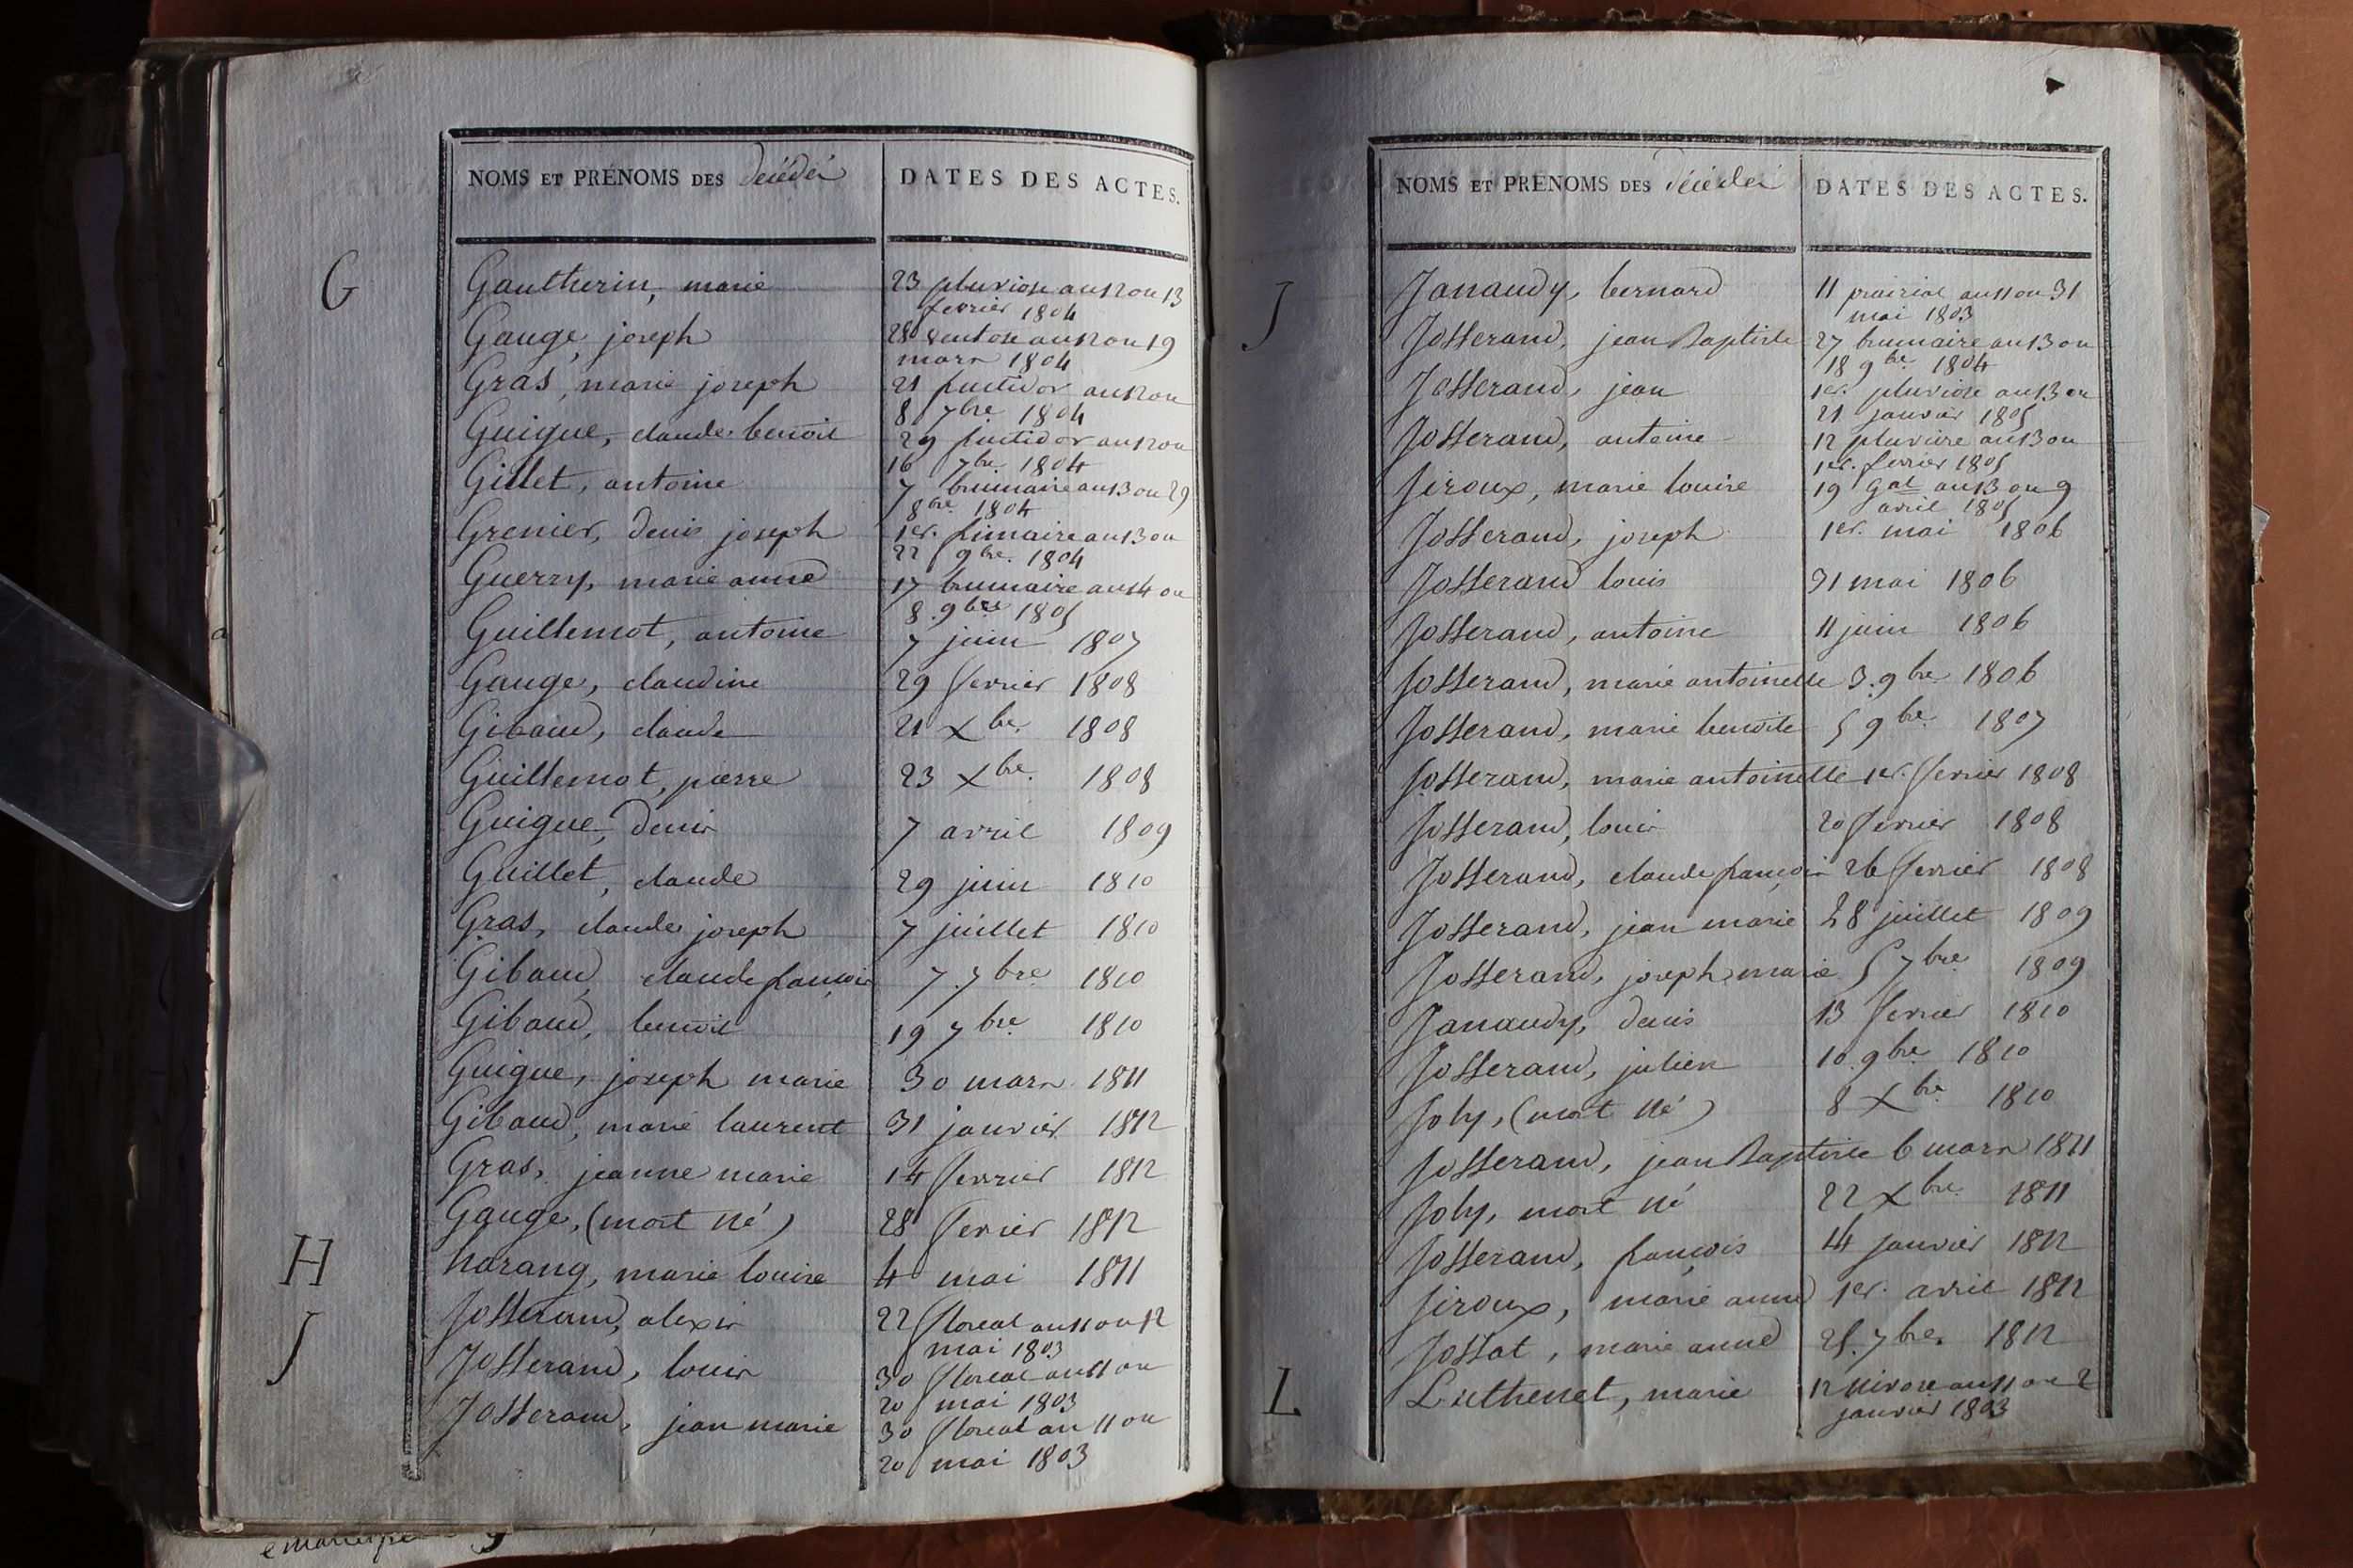 NOMS ET PRÉNOMS DES décédés
DATES DES ACTES.
G
Gautherin, marie 23 pluviose an 12 ou 13
fevrier 1804
Gauge, joseph 28 ventose an 12 ou 19
mars 1804
Gras, marie joseph 21 fructidor an 12 ou
8 7bre 1804
Guigue, claude benoit 29 fructidor an 12 ou
16 7bre 1804
Gillet, antoine 7 brumaire an 13 ou 29
8bre 1804
Grenier, denis joseph 1er. frimaire an 13 ou
22 9bre. 1804
Guerry, marie anne 17 brumaire an 14 ou
8. 9bre 1805
Guillemot, antoine 7 juin 1807
Gauge, claudine 29 fevrier 1808
Gibaud, claude 21 Xbre. 1808
Guillemot, pierre 23 Xbre. 1808
Guigue, denis 7 avril 1809
Guillet, claude 29 juin 1810
Gras, claude joseph 7 juillet 1810
Gibaud, claude françois 7. 7bre 1810
Gibaud, benoit 19 7bre. 1810
Guigue, joseph marie 30 mars 1811
Gibaud, marie laurent 31 janvier 1812
Gras, jeanne marie 14 fevrier 1812
Gauge, (mort né) 28 fevrier 1812
H
harang, marie louise 4 mai 1811
J
Josserand, alexis 22 floreal an 11 ou 12
mai 1803
Josserand, louis 30 floreal an 11 ou
20 mai 1803
Josserand, jean marie 30 floreal an 11 ou
20 mai 1803
NOMS ET PRÉNOMS DES décédés
DATES DES ACTES.
J
Janaudy, bernard 11 prairial an 11 ou 31
mai 1803
Josserand, jean Baptiste 27 brumaire an 13 ou
18 9bre. 1804
Josserand, jean 1er. pluviose an 13 ou
21 janvier 1805
Josserand, antoine 12 pluviose an 13 ou
1er. fevrier 1805
Jiroux, marie louise 19 Gal an 13 ou 9
avril 1805
Josserand, joseph 1er. mai 1806
Josserand louis 31 mai 1806
Josserand, antoine 11 juin 1806
Josserand, marie antoinette 3. 9bre 1806
Josserand, marie benoite 5 9bre. 1807
Josserand, marie antoinette 1er. fevrier 1808
Josserand, louis 20 fevrier 1808
Josserand, claude françois 26 fevrier 1808
Josserand, jean marie 28 juillet 1809
Josserand, joseph marie 5 7bre 1809
Janaudy, denis 13 fevrier 1810
Josserand, julien 10. 9bre 1810
Joly, (mort né) 8 Xbre. 1810
Josserand, jean Baptiste 6 mars 1811
Joly, mort né 22 Xbre 1811
Josserand, françois 14 janvier 1812
Jiroux, marie anne 1er. avril 1812
Jossat, marie anne 25. 7bre. 1812
L
Luthenet, marie 12 nivose an 11 ou 2
janvier 1803